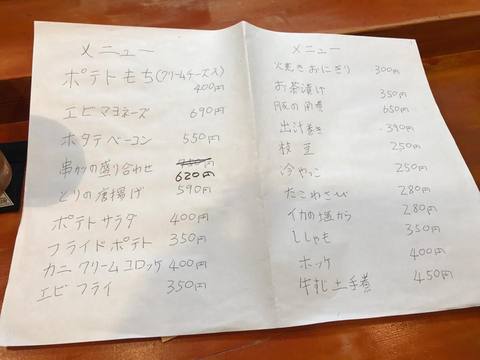 メニュー
ポテトもち(クリームチーズ入)
400円
エビマヨネーズ 690円
ホタテベーコン 550円
串カツの盛り合わせ
620円
とりの唐揚げ 590円
ポテトサラダ 400円
フライドポテト 350円
カニクリームコロッケ 400円
エビフライ 350円
メニュー
焼きおにぎり 300円
お茶漬け 350円
豚の角煮 650円
出汁巻き 390円
枝豆 250円
冷やっこ 250円
たこわさび 280円
イカの塩から 280円
ししゃも 350円
ホッケ 400円
牛すじ土手煮 450円